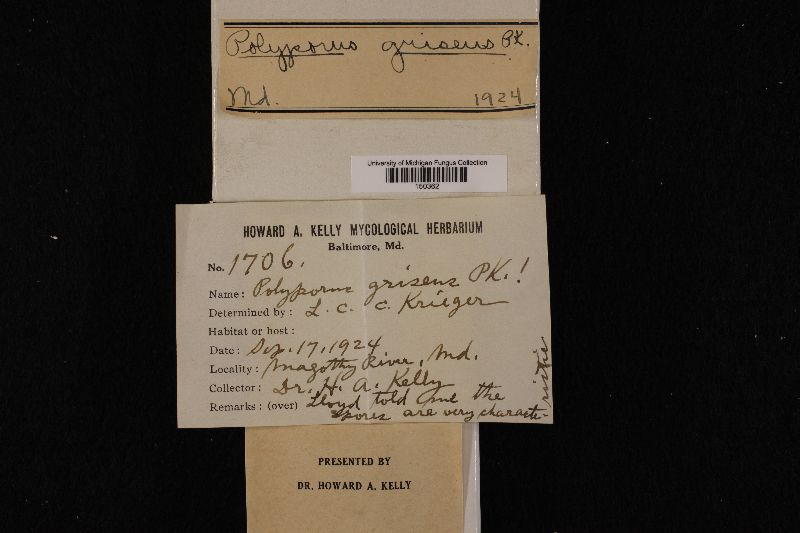 Polyporus griseus Pk.
Md. 1924
University of Michigan Fungus Collection
160362
HOWARD A. KELLY MYCOLOGICAL HERBARIUM
Baltimore, Md.
No. 1706.
Name: Polyporus griseus Pk.!
Determined by: L. C. C. Krieger
Habitat or host:
Date: Sep. 17, 1924
Locality: Magothy River, Md.
Collector: Dr. H. A. Kelly
Remarks: (over) Lloyd told me the
spores are very characte-
ristic
PRESENTED BY
DR. HOWARD A. KELLY